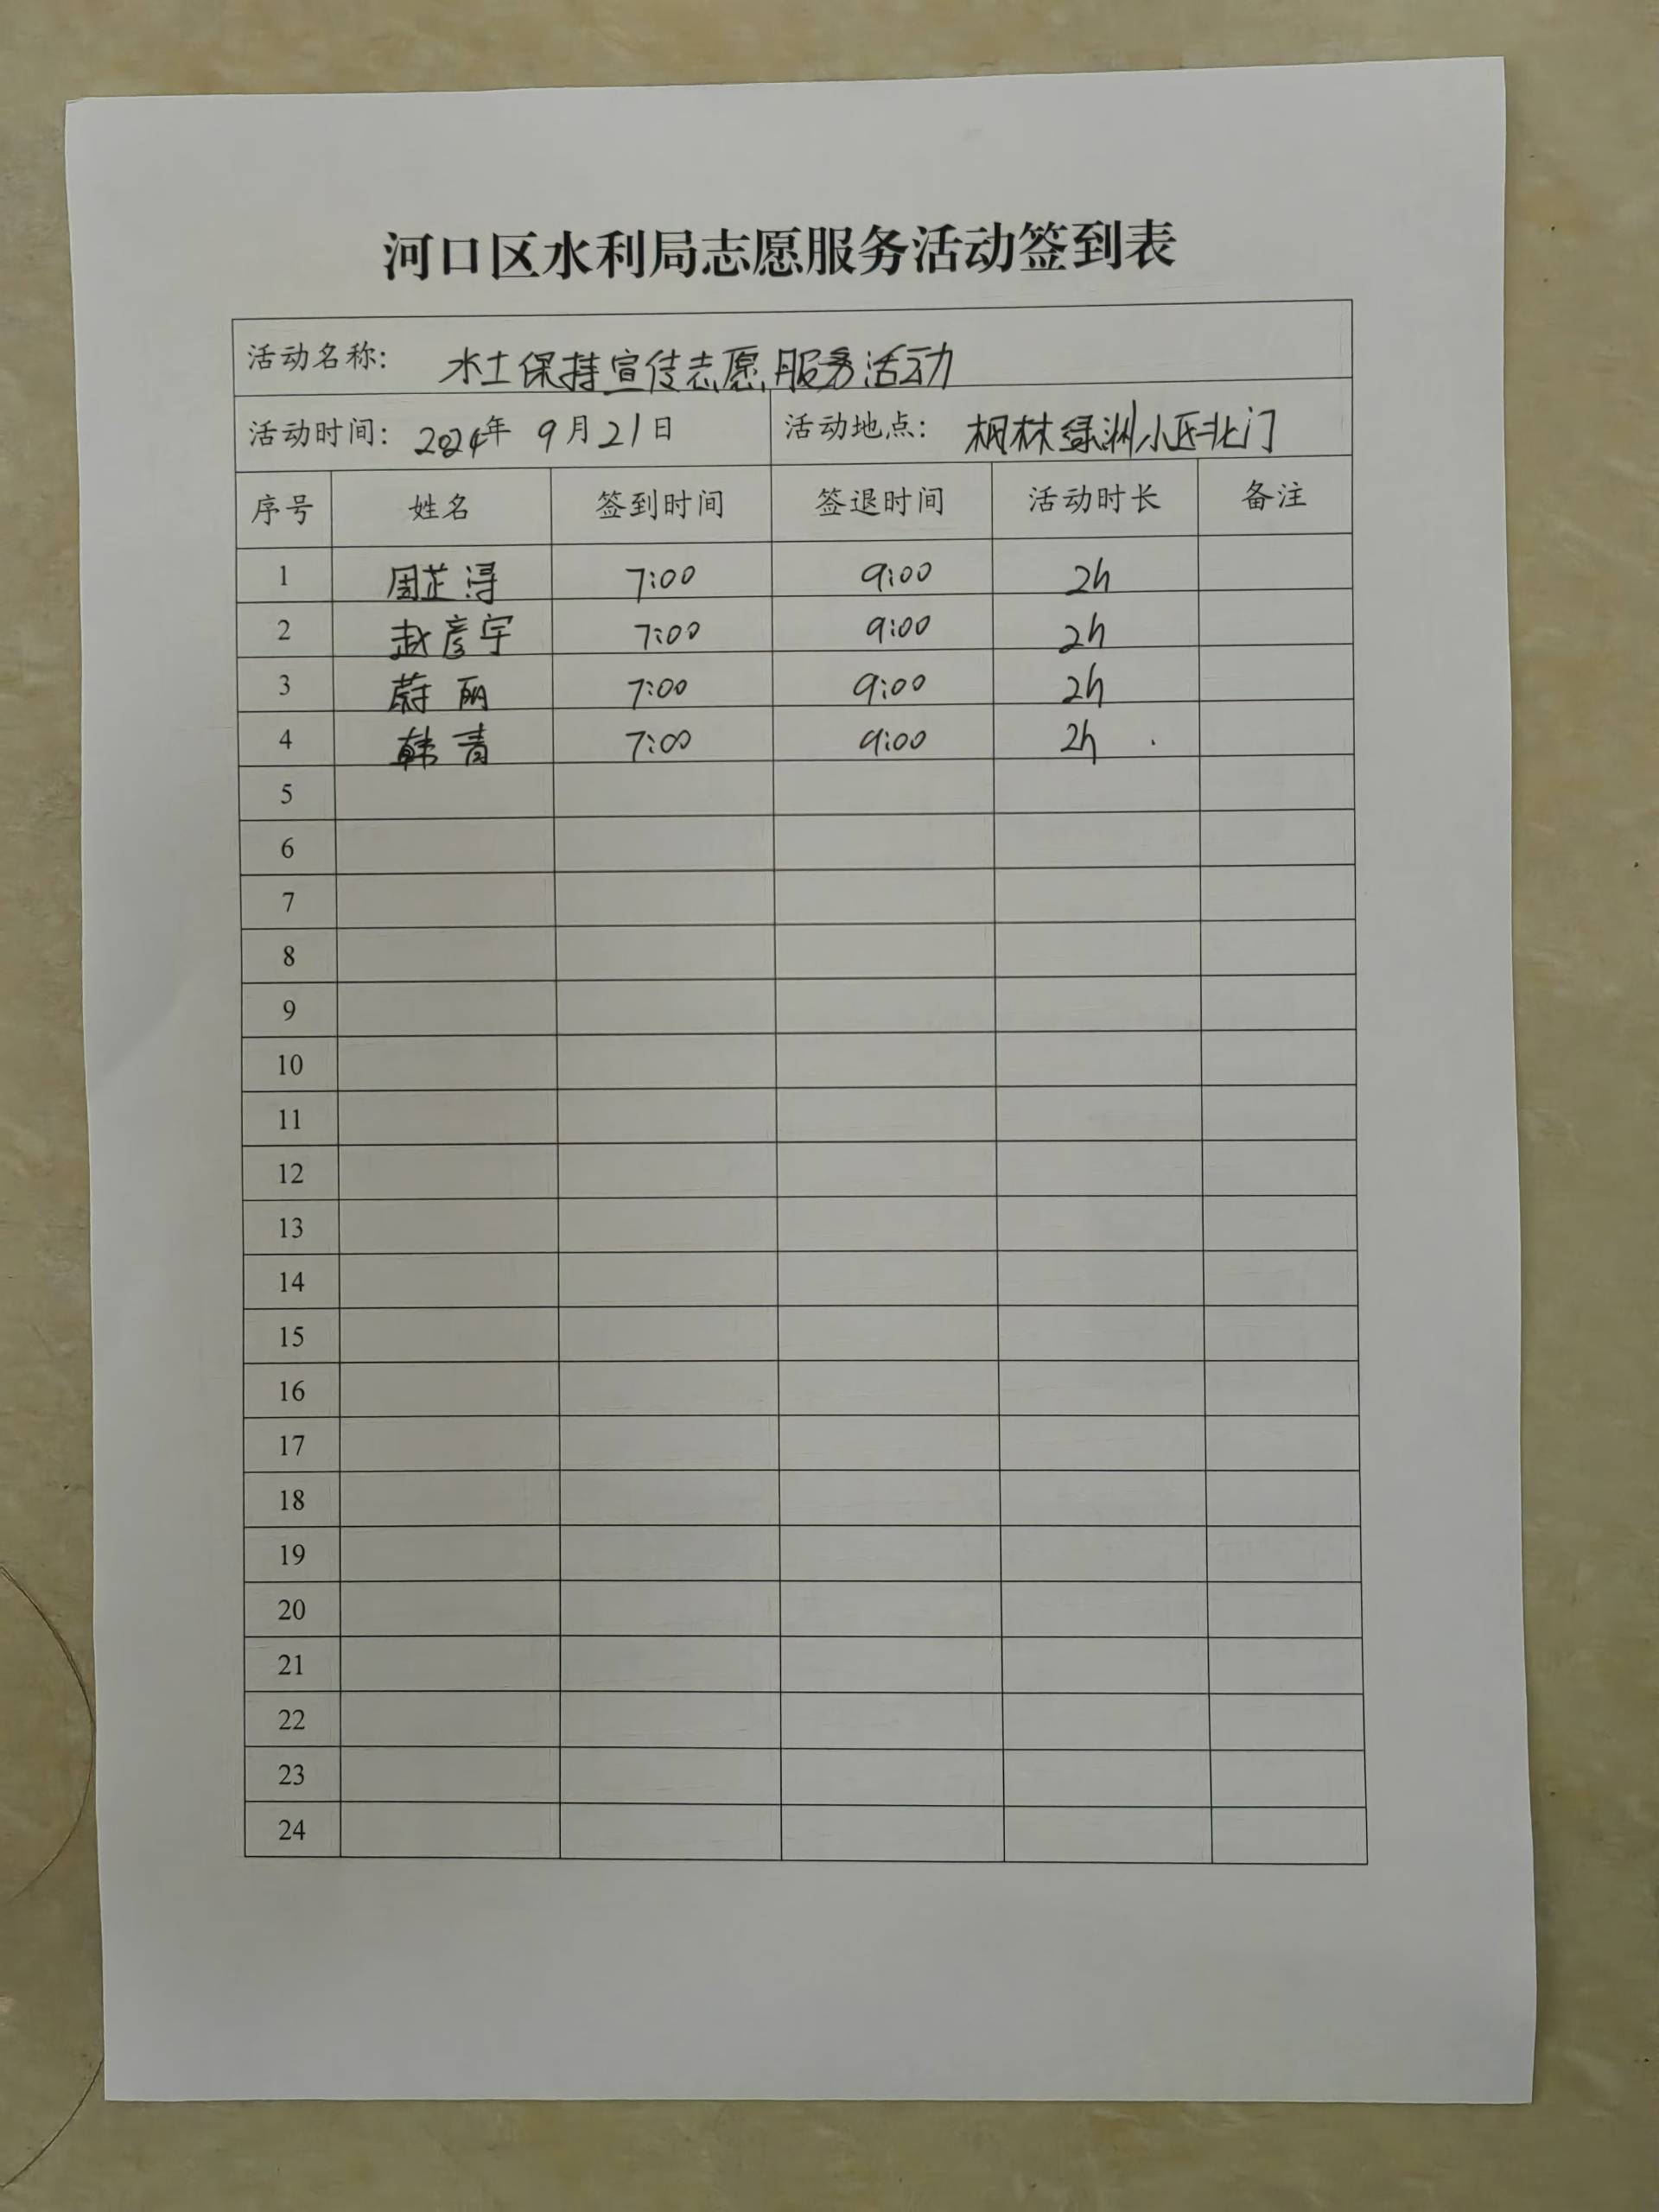 河口区水利局志愿服务活动签到表
活动名称: 水土保持宣传志愿服务活动
活动时间: 2024年 9月21日 活动地点: 枫林绿洲小区北门
序号 姓名 签到时间 签退时间 活动时长 备注
1 周芷浔 7:00 9:00 2h
2 赵彦宇 7:00 9:00 2h
3 蔚丽 7:00 9:00 2h
4 韩青 7:00 9:00 2h
5
6
7
8
9
10
11
12
13
14
15
16
17
18
19
20
21
22
23
24